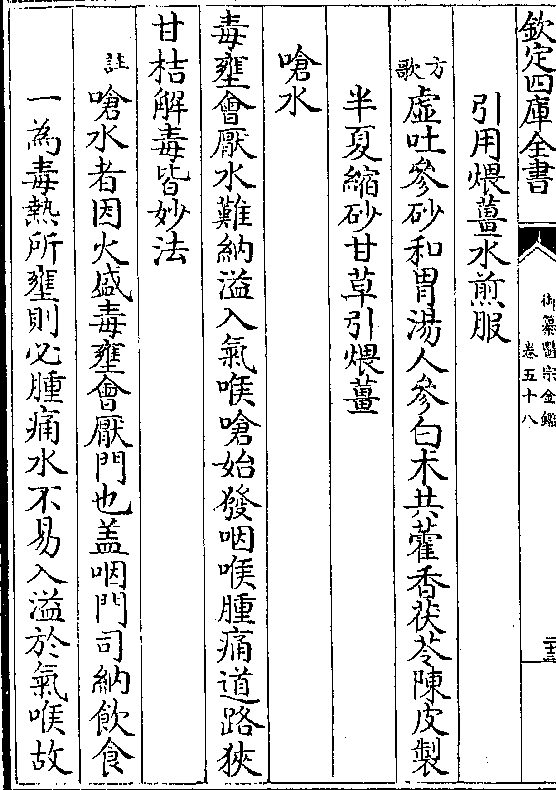 欽定四庫全書
御纂醫宗金鑑
卷五十八
引用煨薑水煎服
方歌 虛吐參砂和胃湯人參白朮共藿香茯苓陳皮製
半夏縮砂甘草引煨薑
嗆水
毒壅會厭水難納溢入氣喉嗆始發咽喉腫痛道路狹
甘桔解毒皆妙法
註 嗆水者因火盛毒壅會厭門也盖咽門司納飲食
一為毒熱所壅則必腫痛水不易入溢於氣喉故